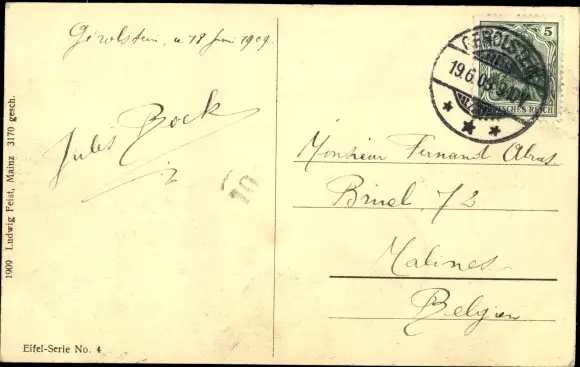 Gerolstein, 18 Juni 1909.
Jules Bock
10
1909 Ludwig Feist, Mainz 3170 gesch.
Eifel-Serie No. 4
5
DEUTSCHES REICH
GEROLSTEIN
19.6.09
Monsieur Fernand
Bruel, 72
Malines
Belgien